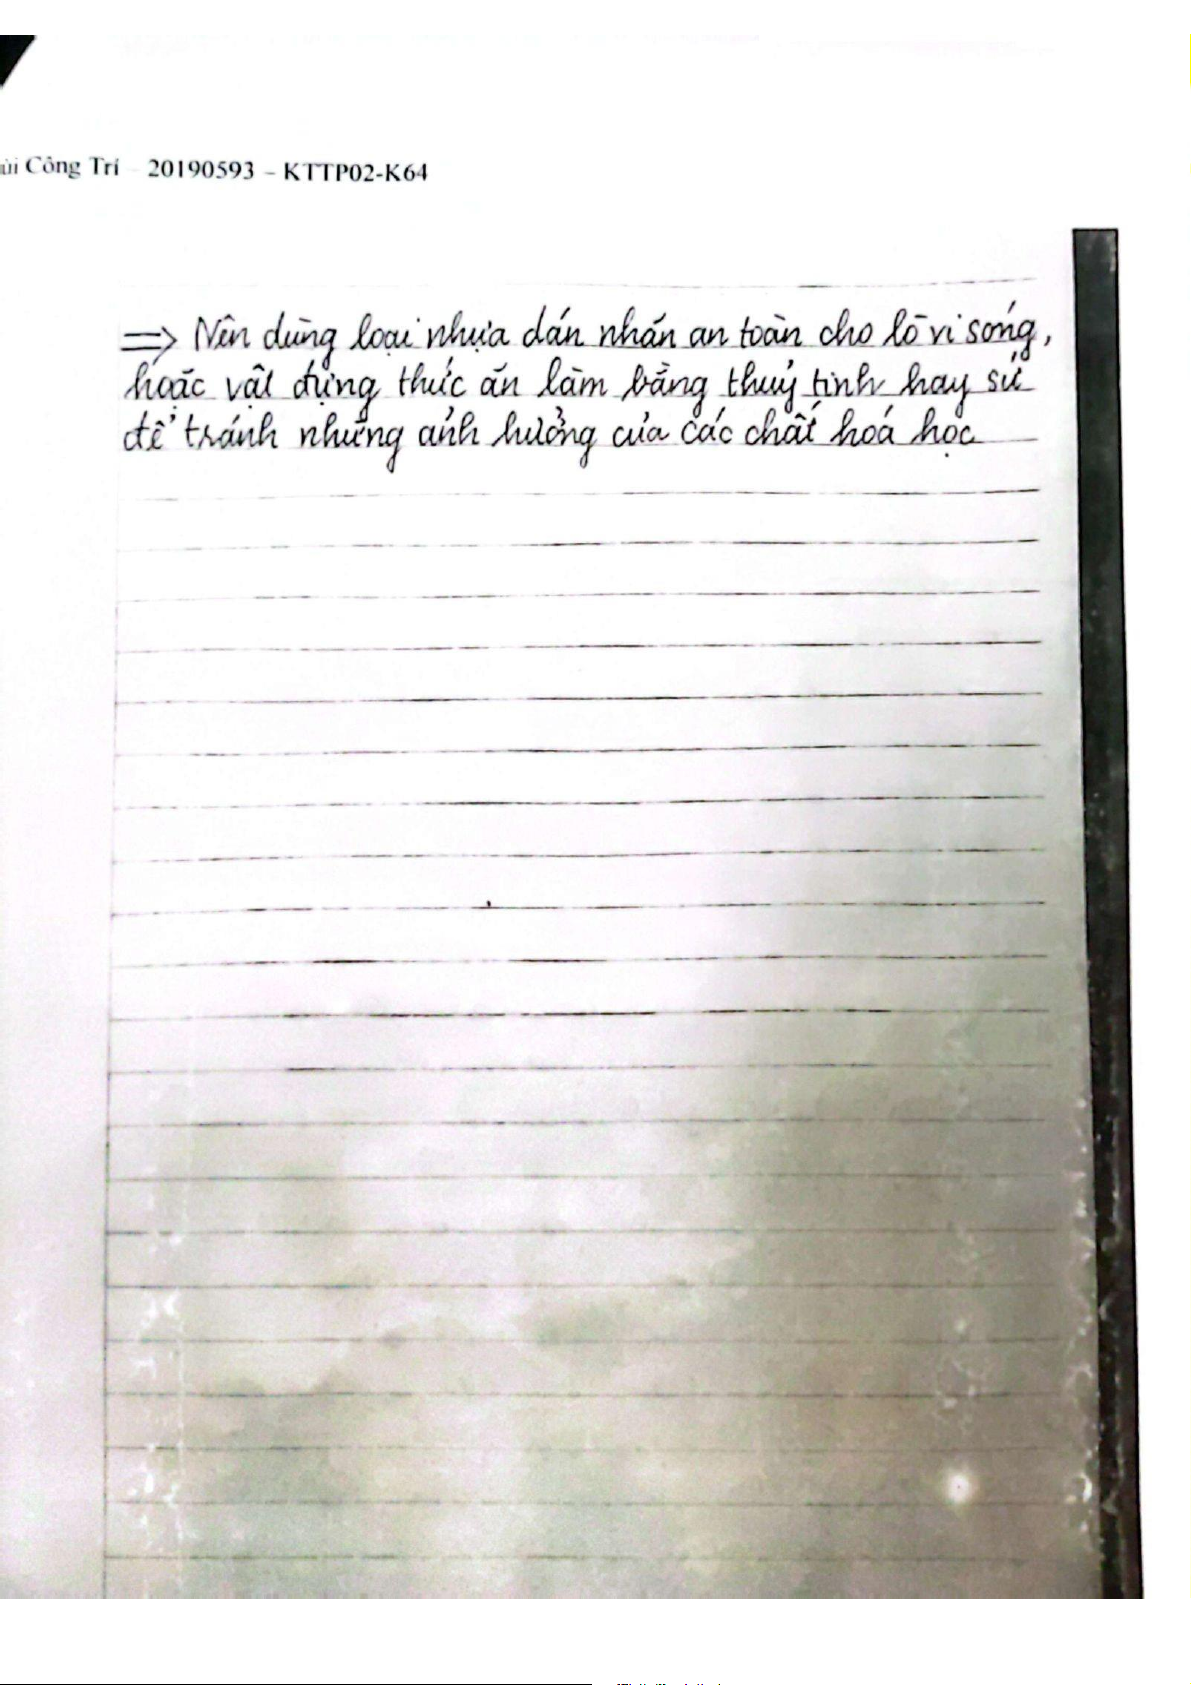 ùi Công Trí – 20190593 – KTTP02-K64
=> Nên dùng loại nhựa dán nhãn an toàn cho lò vi sóng,
hoặc vật đựng thức ăn làm bằng thuỷ tinh hay sứ
để tránh những ảnh hưởng của các chất hoá học